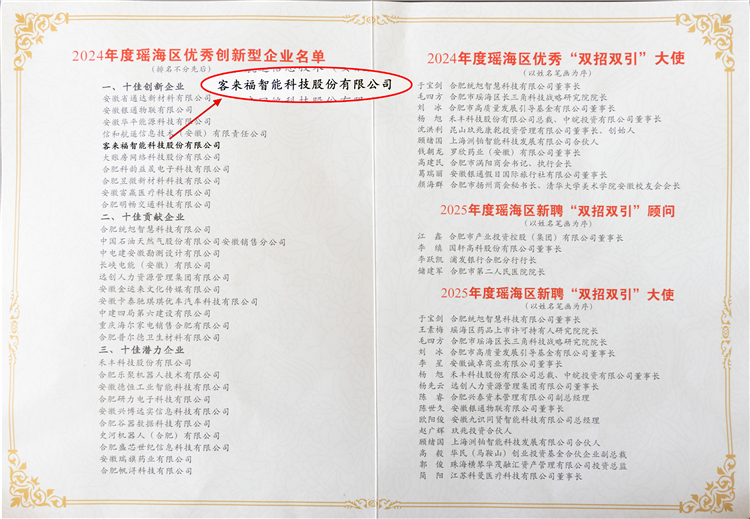 2024年度瑶海区优秀创新型企业名单
(排名不分先后)
一、十佳创新企业
客来福智能科技股份有限公司
安徽省通达新材料有限公司
安徽银通物联有限公司
安徽华平能源科技有限公司
信和航通信息技术(安徽)有限责任公司
客来福智能科技股份有限公司
大账房网络科技股份有限公司
合肥科韵益晟电子科技有限公司
合肥昱微新材料科技有限公司
安徽富嬴医疗科技有限公司
合肥明畅交通科技有限公司
二、十佳贡献企业
合肥统旭智慧科技有限公司
中国石油天然气股份有限公司安徽销售分公司
中电建安徽勘测设计有限公司
长峡电能(安徽)有限公司
远创人力资源管理集团有限公司
安徽金运来文化传媒有限公司
安徽卡泰驰琪琪优车汽车科技有限公司
中建四局第六建设有限公司
重庆海尔家电销售合肥有限公司
合肥普尔德卫生材料有限公司
三、十佳潜力企业
禾丰科技股份有限公司
合肥乐聚机器人技术有限公司
安徽德恒工业智能科技有限公司
合肥研力电子科技有限公司
安徽兴博远实信息科技有限公司
合肥谷器数据科技有限公司
史河机器人(合肥)有限公司
合肥盛芯世纪信息科技有限公司
安徽瑞旗药业有限公司
合肥帆浔科技有限公司
2024年度瑶海区优秀“双招双引”大使
(以姓名笔画为序)
于宝剑 合肥统旭智慧科技有限公司董事长
毛四方 合肥市瑶海区长三角科技战略研究院院长
刘 冰 合肥市高质量发展引导基金有限公司董事长
杨 旭 禾丰科技股份有限公司总裁、中皖投资有限公司董事长
沈洪利 昆山玖兆康乾投资管理有限公司董事长、创始人
顾绪国 上海洲铂智能科技发展有限公司合伙人
钱朝龙 罗欣药业(安徽)有限公司董事长
高建民 合肥市濉阳商会书记、执行会长
葛瑞丽 安徽银通假日国际旅行社有限公司董事长
颜海群 合肥市扬州商会秘书长、清华大学美术学院安徽校友会会长
2025年度瑶海区新聘“双招双引”顾问
(以姓名笔画为序)
江 鑫 合肥市产业投资控股(集团)有限公司董事长
李 缜 国轩高科股份有限公司董事长
李跃凯 浦发银行合肥分行行长
储建军 合肥市第二人民医院院长
2025年度瑶海区新聘“双招双引”大使
(以姓名笔画为序)
于宝剑 合肥统旭智慧科技有限公司董事长
王素梅 瑶海区药品上市许可持有人研究院院长
毛四方 合肥市瑶海区长三角科技战略研究院院长
刘 冰 合肥市高质量发展引导基金有限公司董事长
李 星 安徽诚亭商业有限公司董事长
杨 旭 禾丰科技股份有限公司总裁、中皖投资有限公司董事长
杨先云 远创人力资源管理集团有限公司董事长
陈 睿 合肥兴泰资本管理有限公司副总经理
陈世久 安徽银通物联有限公司董事长
欧阳俊 安徽九识问贤智能科技有限公司总经理
赵广辉 玖兆投资合伙人
顾绪国 上海洲铂智能科技发展有限公司合伙人
高 毅 华民(马鞍山)创业投资基金合伙企业副总裁
郭 俊 珠海横琴华茂融汇资产管理有限公司投资总监
简 阳 江苏科曼医疗科技有限公司董事长